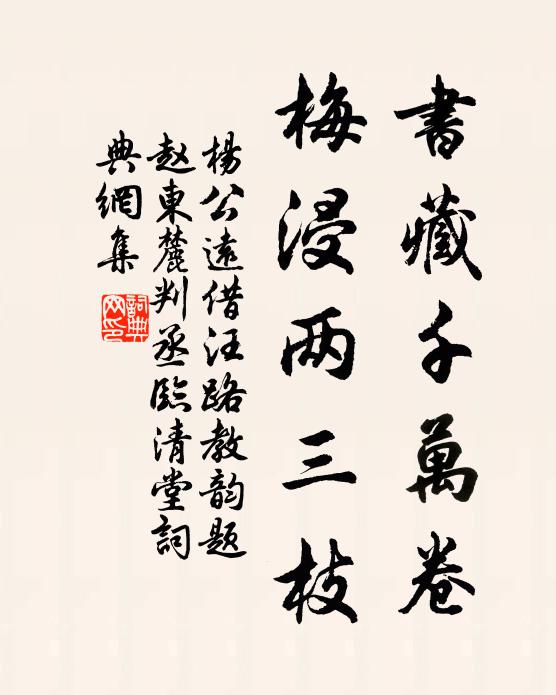 書藏千萬卷
梅浸两三枝
楊公遠借汪路教韵题
赵東麓判丞臨清堂詞
典網集
詞典网印